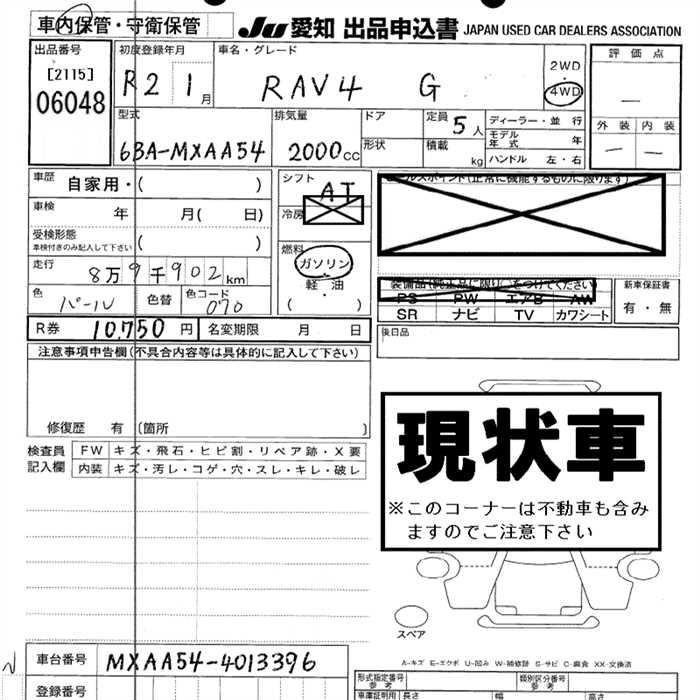 車内保管・守衛保管 Ju 愛知 出品申込書 JAPAN USED CAR DEALERS ASSOCIATION
出品番号 初度登録年月 車名・グレード 2WD 評価点
[2115] R2 1月 RAV4 G ・
06048 4WD —
型式 排気量 ドア 定員 5人 ディーラー・並行 外装 内装
形状 積載 kg モデル年式 年 — —
6BA-MXAA54 2000cc ハンドル 左・右
車歴 自家用・( ) シフト AT セールスポイント(正常に機能するものに限ります)
車検 年 月( 日) 冷房
受検形態
車検付きのみ記入して下さい ( ) 燃料
走行 8万9千902km ガソリン 装備品(純正品に限り○をつけてください) 新車保証書
色 パール 色替 色コード 070 軽油 PS PW エアB AW 有・無
( ) SR ナビ TV カワシート
R券 10,750円 名変期限 月 日 後日品
注意事項申告欄(不具合内容等は具体的に記入して下さい)
修復歴 有 (箇所 )
現状車
※このコーナーは不動車も含み
ますのでご注意下さい
検査員 FW キズ・飛石・ヒビ割・リペア跡・X要
記入欄 内装 キズ・汚レ・コゲ・穴・スレ・キレ・破レ
スペア
A-キズ E-エクボ U-凹み W-補修跡 S-サビ C-腐食 XX-交換済
車台番号 MXAA54-4013396 形式指定番号 類別区分番号
参考 参考
登録番号 車庫証明用 長さ 幅 高さ